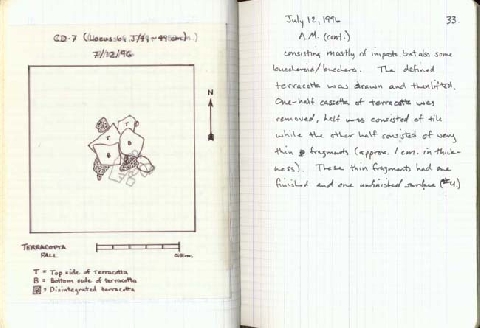 CD-7 (Locus 68
7/12/96
N
T
T
B
B
TERRACOTTA
FALL
T = Top side of terracotta
B = Bottom side of terracotta
= Disintegrated terracotta
July 12, 1996 33.
A.M. (cont.)
consisting mostly of impasto but also some
buccheroid/bucchero. The defined
terracotta was drawn and then lifted.
One-half cassetta of terracotta was
removed, half was consisted of tile
while the other half consisted of very
thin fragments (approx. 1 cm. in thick-
ness). These thin fragments had one
finished and one unfinished surface (#4)